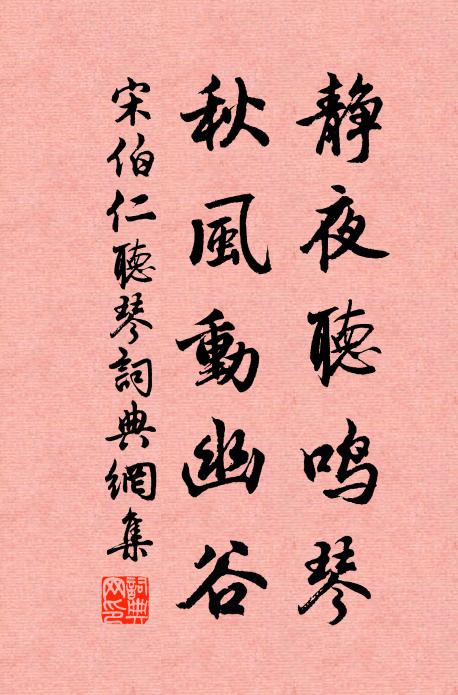 静夜聽鸣琴
秋風動幽谷
宋伯仁聽琴詞典網集
詞典网印